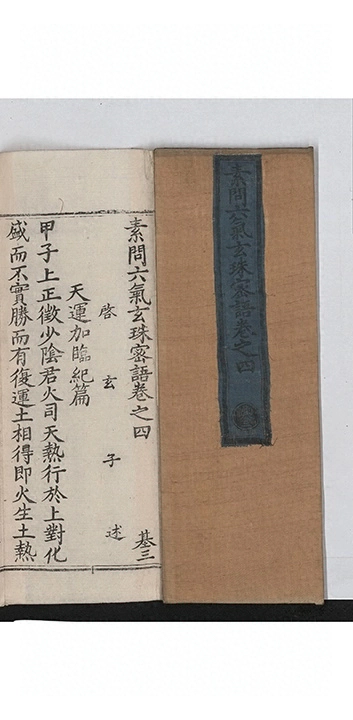 素問六氣玄珠密語卷之四
素問六氣玄珠密語卷之四
啓玄子述 基三
天運加臨紀篇
甲子上正徵少陰君火司天熱行於上對化
盛而不實勝而有復運土相得即火生土熱